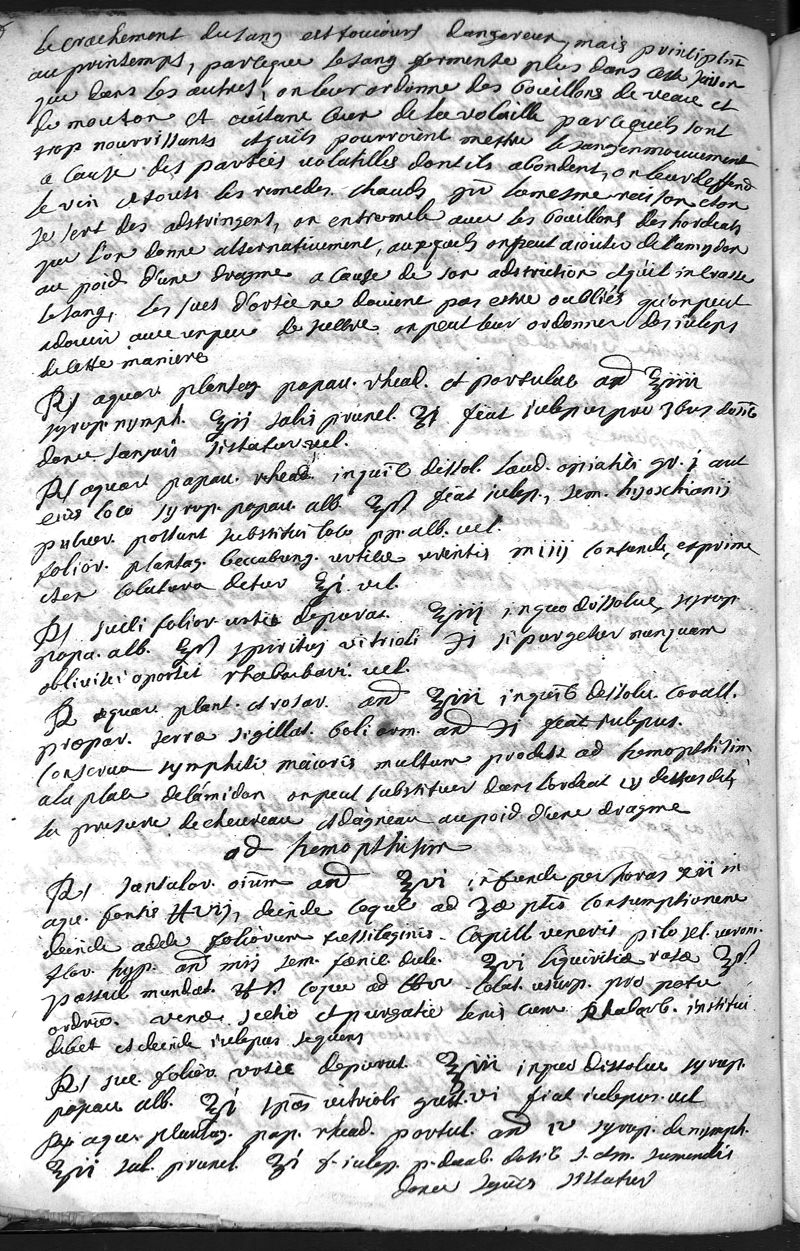 le crachement du sang est toujours dangereux, mais principlmt
au printemps, parceque le sang fermente plus dans cette saison
que dans les autres, on leur ordonne des bouillons de veau et
de mouton et oultane ceux de la volaille parcequils sont
trop nourrissants et quils pourroient mettre le sang en mouvement
a cause des partiees volatilles dont ils abondent, on leur deffend
le vin et touts les remedes chauds par la mesme raison et on
se sert des adstringent, on entremele avec les bouillons des hordeats
que l'on donne alternativement, auxquels on peut aiouter de l'amydon
au poid d'une dragme a cause de son adstriction et quil incrasse
le sang, les sucs d'ortie ne doivent pas estre oubliés qu'on peut
adoucir avec un peu de sucre on peut leur ordonner des iuleps
de cette maniere
℞ aquar. plantag. papau. rhead. et portulac an ℥iiii
syrup. nymph. ℥ii salis prunel. ʒi fiat iulepus pro 3bus dosib
donec sanguis sistatur vel.
℞ aquar. papau. rhead. in quib dissol. laud. opiatici gr. i aut
eius loco syrup. papau. alb. ℥ß fiat iulep., sem. hyoschiamij
pulver. possunt substitui loco pp. alb. vel.
folior. plantag. beccabung. urticae urentis miiij contunde, exprime
colatura detur ℥i vel.
℞ succi folior. urtic depurat. ℥iii in quo dissolve syrup.
papa. alb. ℥ß spiritus vitrioli ʒi si purgetur nunquam
oblivisci oportet rhabarbari. vel.
℞ aquar. plant. et rosar. an ℥iii in quib dissolu. corall.
praepar. terrae sigillat. boli arm. an ʒi fiat iulepus.
conserva symphiti maioris multum prodest ad hemophtisim
a la place de lamidon on peut substituer dans l'ordeat cy dessus dit
la presure de chevreau et d'agneau au poid d'une dragme
ad hemophtisim
℞ santalor. oium an ʒvi infunde per horas xii in
aqu. fontis deinde coque ad ptis consumptionem
deinde adde foliorum tussilaginis. capill veneris pilosel. veron.
flor. hyp. an mij sem. faenic dulc. ʒvi liquiritiae rasae ℥ß
passul mundat. coque ad colat. usurp. pro potu
ordrio. venae sectio et purgatio lenis cum rhabarb. institui
debet et deinde iulepus sequens
℞ suc. folior. urtic depurat. ℥iii in quo dissolve syrup.
papau alb. ℥i spus vitrioli gutt. vi fiat iulepus. vel
℞ aqu. plantag. pap. rhead. portul. an syrup. de nymph.
℥ii sal. prunel. ʒi f. iulep. p. duab. dosib sumendis
donec sguis sistatur